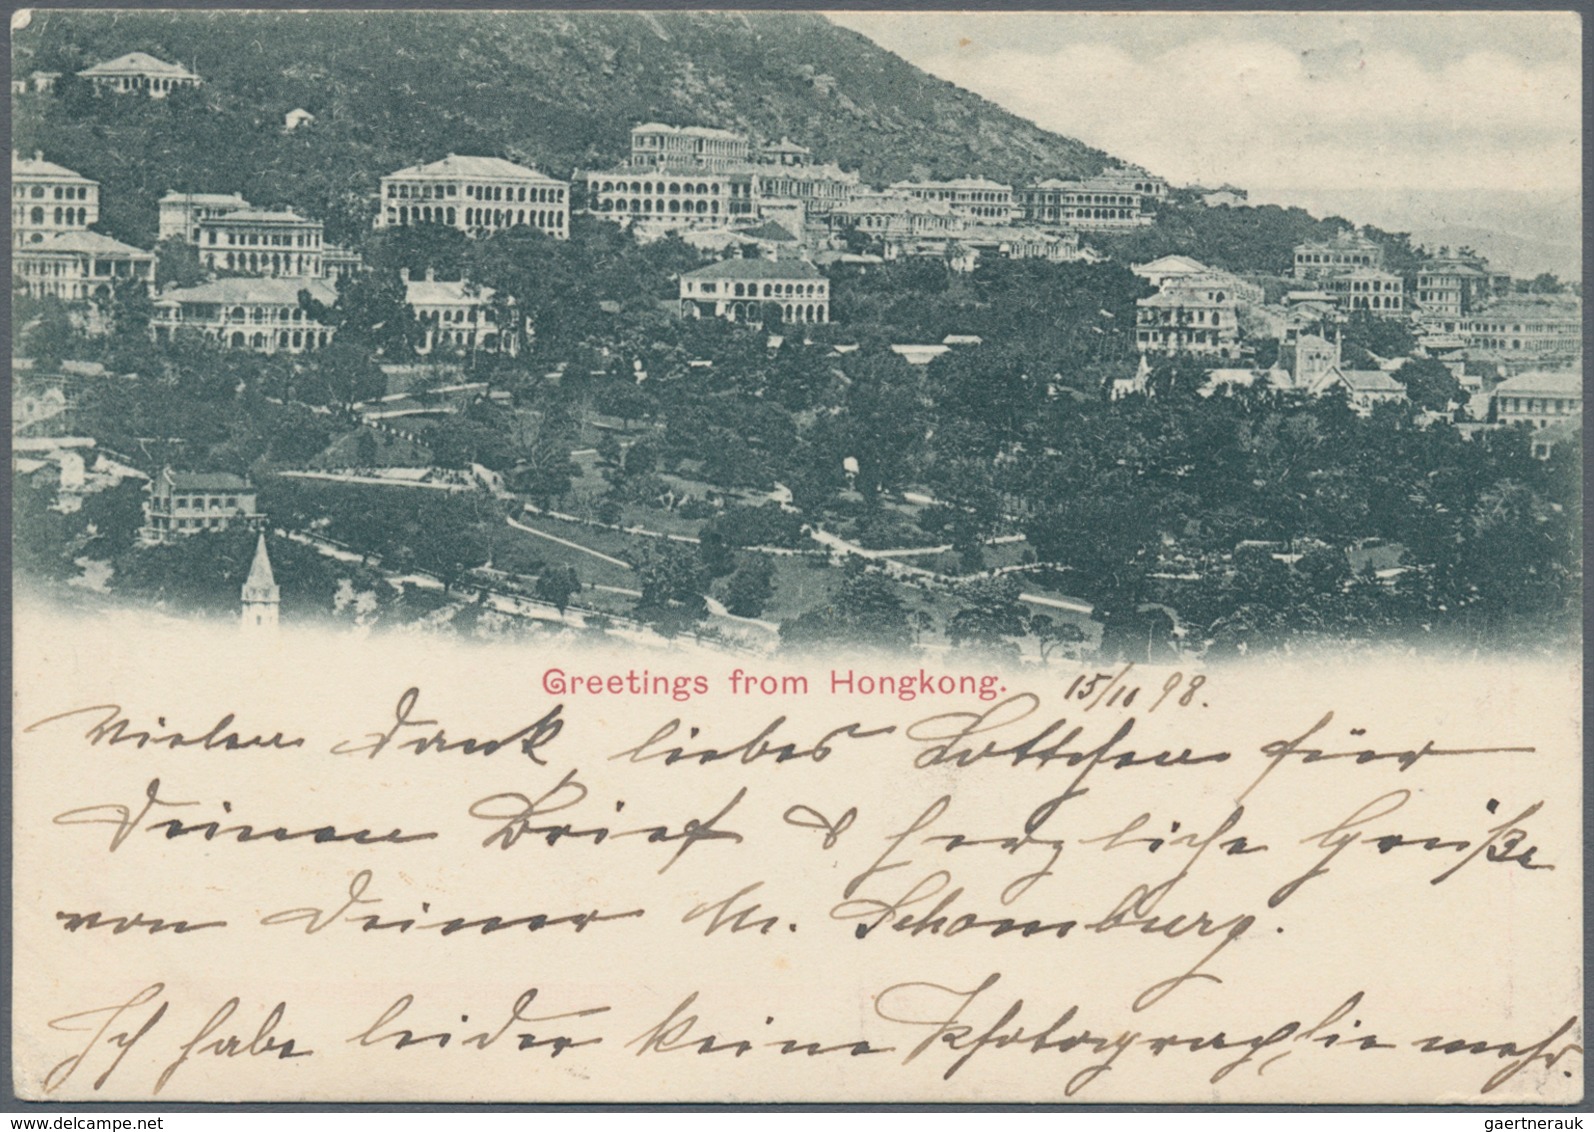 Greetings from Hongkong. 15/10 98.
Vielen Dank liebes Lottchen für
Deinen Brief & herzliche Grüße
von Deiner M. Schomburg.
Ich habe leider keine Photographie mehr.
www.delcampe.net
gaertnerauk